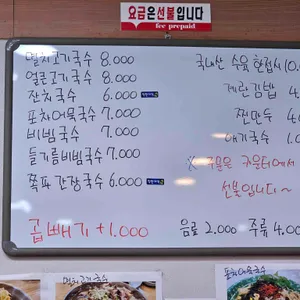 요금은선불입니다
fee prepaid
멸치고기국수 8.000
얼큰고기국수 8.000
잔치국수 6.000
포차어묵국수 7.000
비빔국수 7.000
들기름비빔국수 7.000
쪽파간장국수 6.000
곱빼기 +1.000
국내산 수육 한접시
계란김밥 4.
찐만두 4.
애기국수 1.0
※ 주문은 카운터에서
선불입니다~
음료 2.000 주류 4.00
멸치고기국수
포차어묵국수